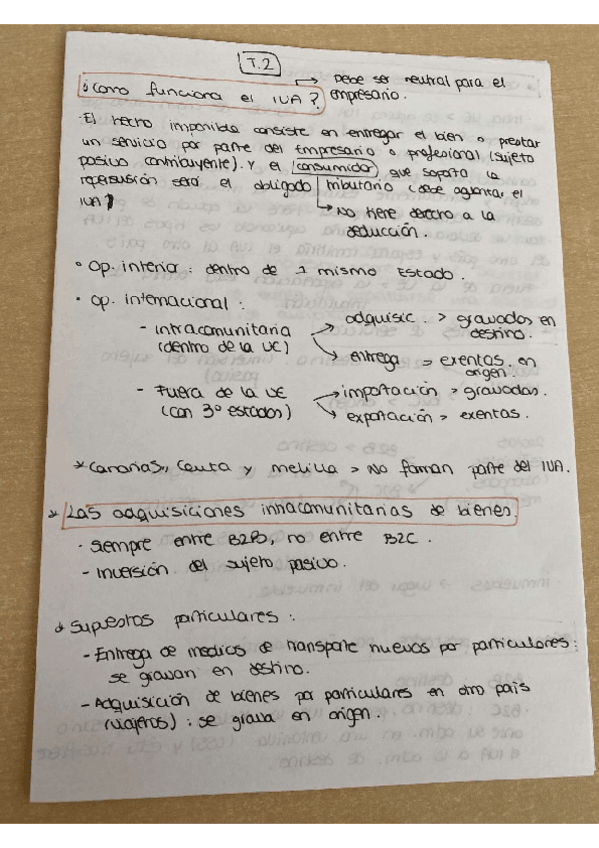 T.2
¿Como funciona el IVA? → Debe ser neutral para el
empresario.
· El hecho imponible consiste en entregar el bien o prestar
un servicio por parte del Empresario o profesional (sujeto
pasivo contribuyente). y el consumidor, que soporta la
repercusión será el obligado tributario (debe aguantar el
IVA)
→ No tiene derecho a la
deducción.
· Op. interior: dentro de 1 mismo Estado.
· op. internacional:
- intracomunitaria
(dentro de la UE)
→ adquisic. > gravados en
destino.
→ entrega => exentas en
origen.
- Fuera de la UE
(con 3º estados)
→ importación > gravadas.
→ exportación > exentas.
* Canarias, Ceuta y Melilla > No forman parte del IVA.
* Las adquisiciones intracomunitarias de bienes.
· siempre entre B2B, no entre B2C.
- Inversión del sujeto pasivo.
* Supuestos particulares:
- Entrega de medios de transporte nuevos por particulares:
se gravan en destino.
- Adquisición de bienes por particulares en otro país
(viajeros): se grava en origen.